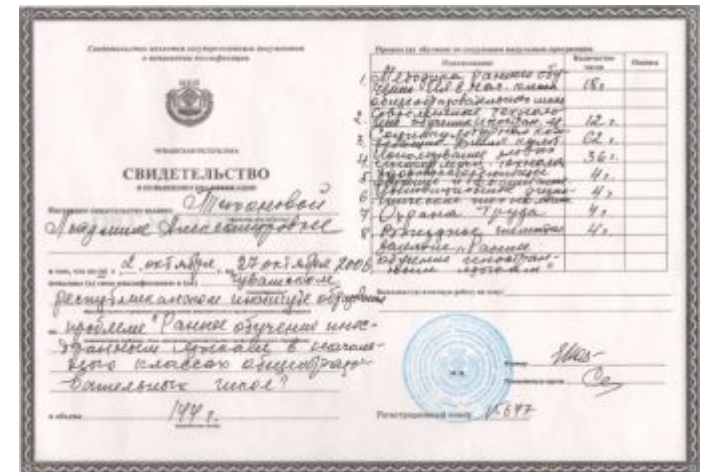 Свидетельство является государственным документом
о повышении квалификации
ЧУВАШСКАЯ РЕСПУБЛИКА
СВИДЕТЕЛЬСТВО
О ПОВЫШЕНИИ КВАЛИФИКАЦИИ
Настоящее свидетельство выдано
Людмиле Александровне
в том, что он (а) с 2 октября по 27 октября 2006
повышал (а) свою квалификацию в (на) Чувашском
республиканском институте образования
по проблеме "Раннее обучение инос-
транным языкам в началь-
ных классах общеобразо-
вательных школ"
в объеме 144 ч.
Прошел (а) обучение по следующим модульным программам:
Наименование Количество часов Оценка
1. Методика раннего обу-
чения ИЯ в нач. классах
общеобразовательных школ 18ч
2. Современные техноло-
гии обучения иностран. яз. 12 ч.
3. 62 ч.
4. Использование новых
36 ч.
5 4ч
6 4ч
7 Охрана труда 4ч
8 Выездное занятие 4ч
"Раннее
обучение иностран-
ным языкам"
Выполнил (а) итоговую работу на тему:
М.П.
Ректор
Регистрационный номер №647